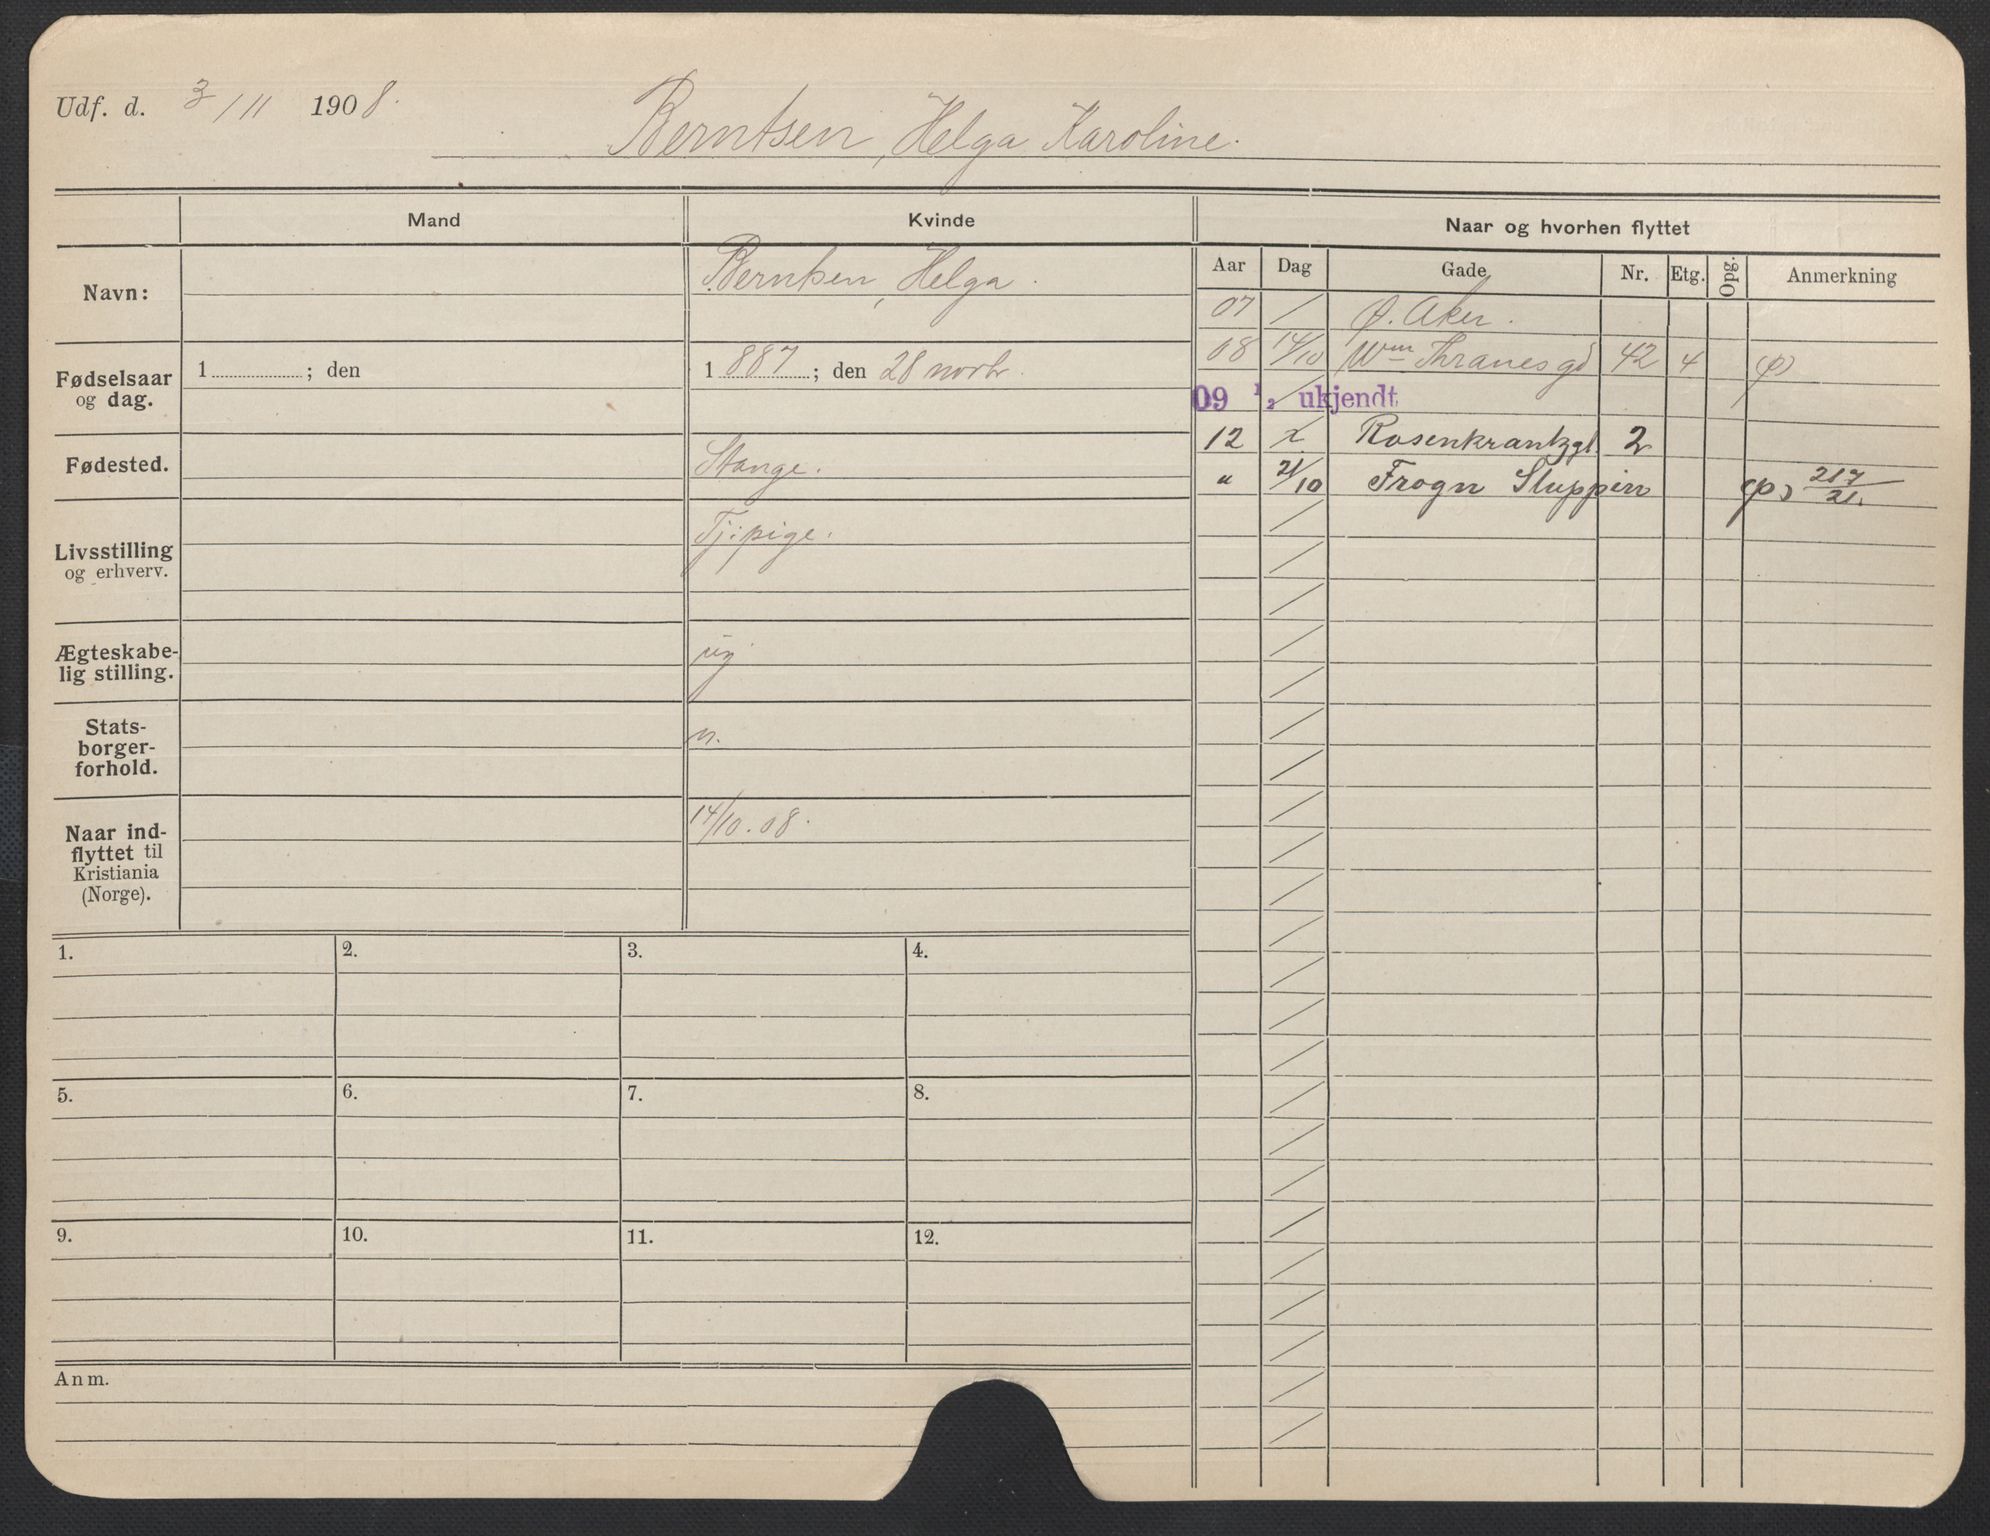 Udf. d. 3/11 1908.
Berntsen, Helga Karoline.
Mand Kvinde Naar og hvorhen flyttet
Aar Dag Gade Nr. Etg. Opg. Anmerkning
Navn: Berntsen, Helga.
Fødselsaar og dag. 1 ; den 1887 ; den 28 novbr.
Fødested. Stange.
Livsstilling og erhverv. Tj:pige.
Ægteskabe-
lig stilling. ug
Stats-
borger-
forhold. n.
Naar ind-
flyttet til
Kristiania
(Norge). 14/10.08.
07 / Ø. Aker.
08 14/10 Wm Thranes gd 42 4 φ
09 1/2 ukjendt
12 x Rosenkrantzgt. 2
" 21/10 Frogn Sluppin 217/21.
1. 2. 3. 4.
5. 6. 7. 8.
9. 10. 11. 12.
Anm.